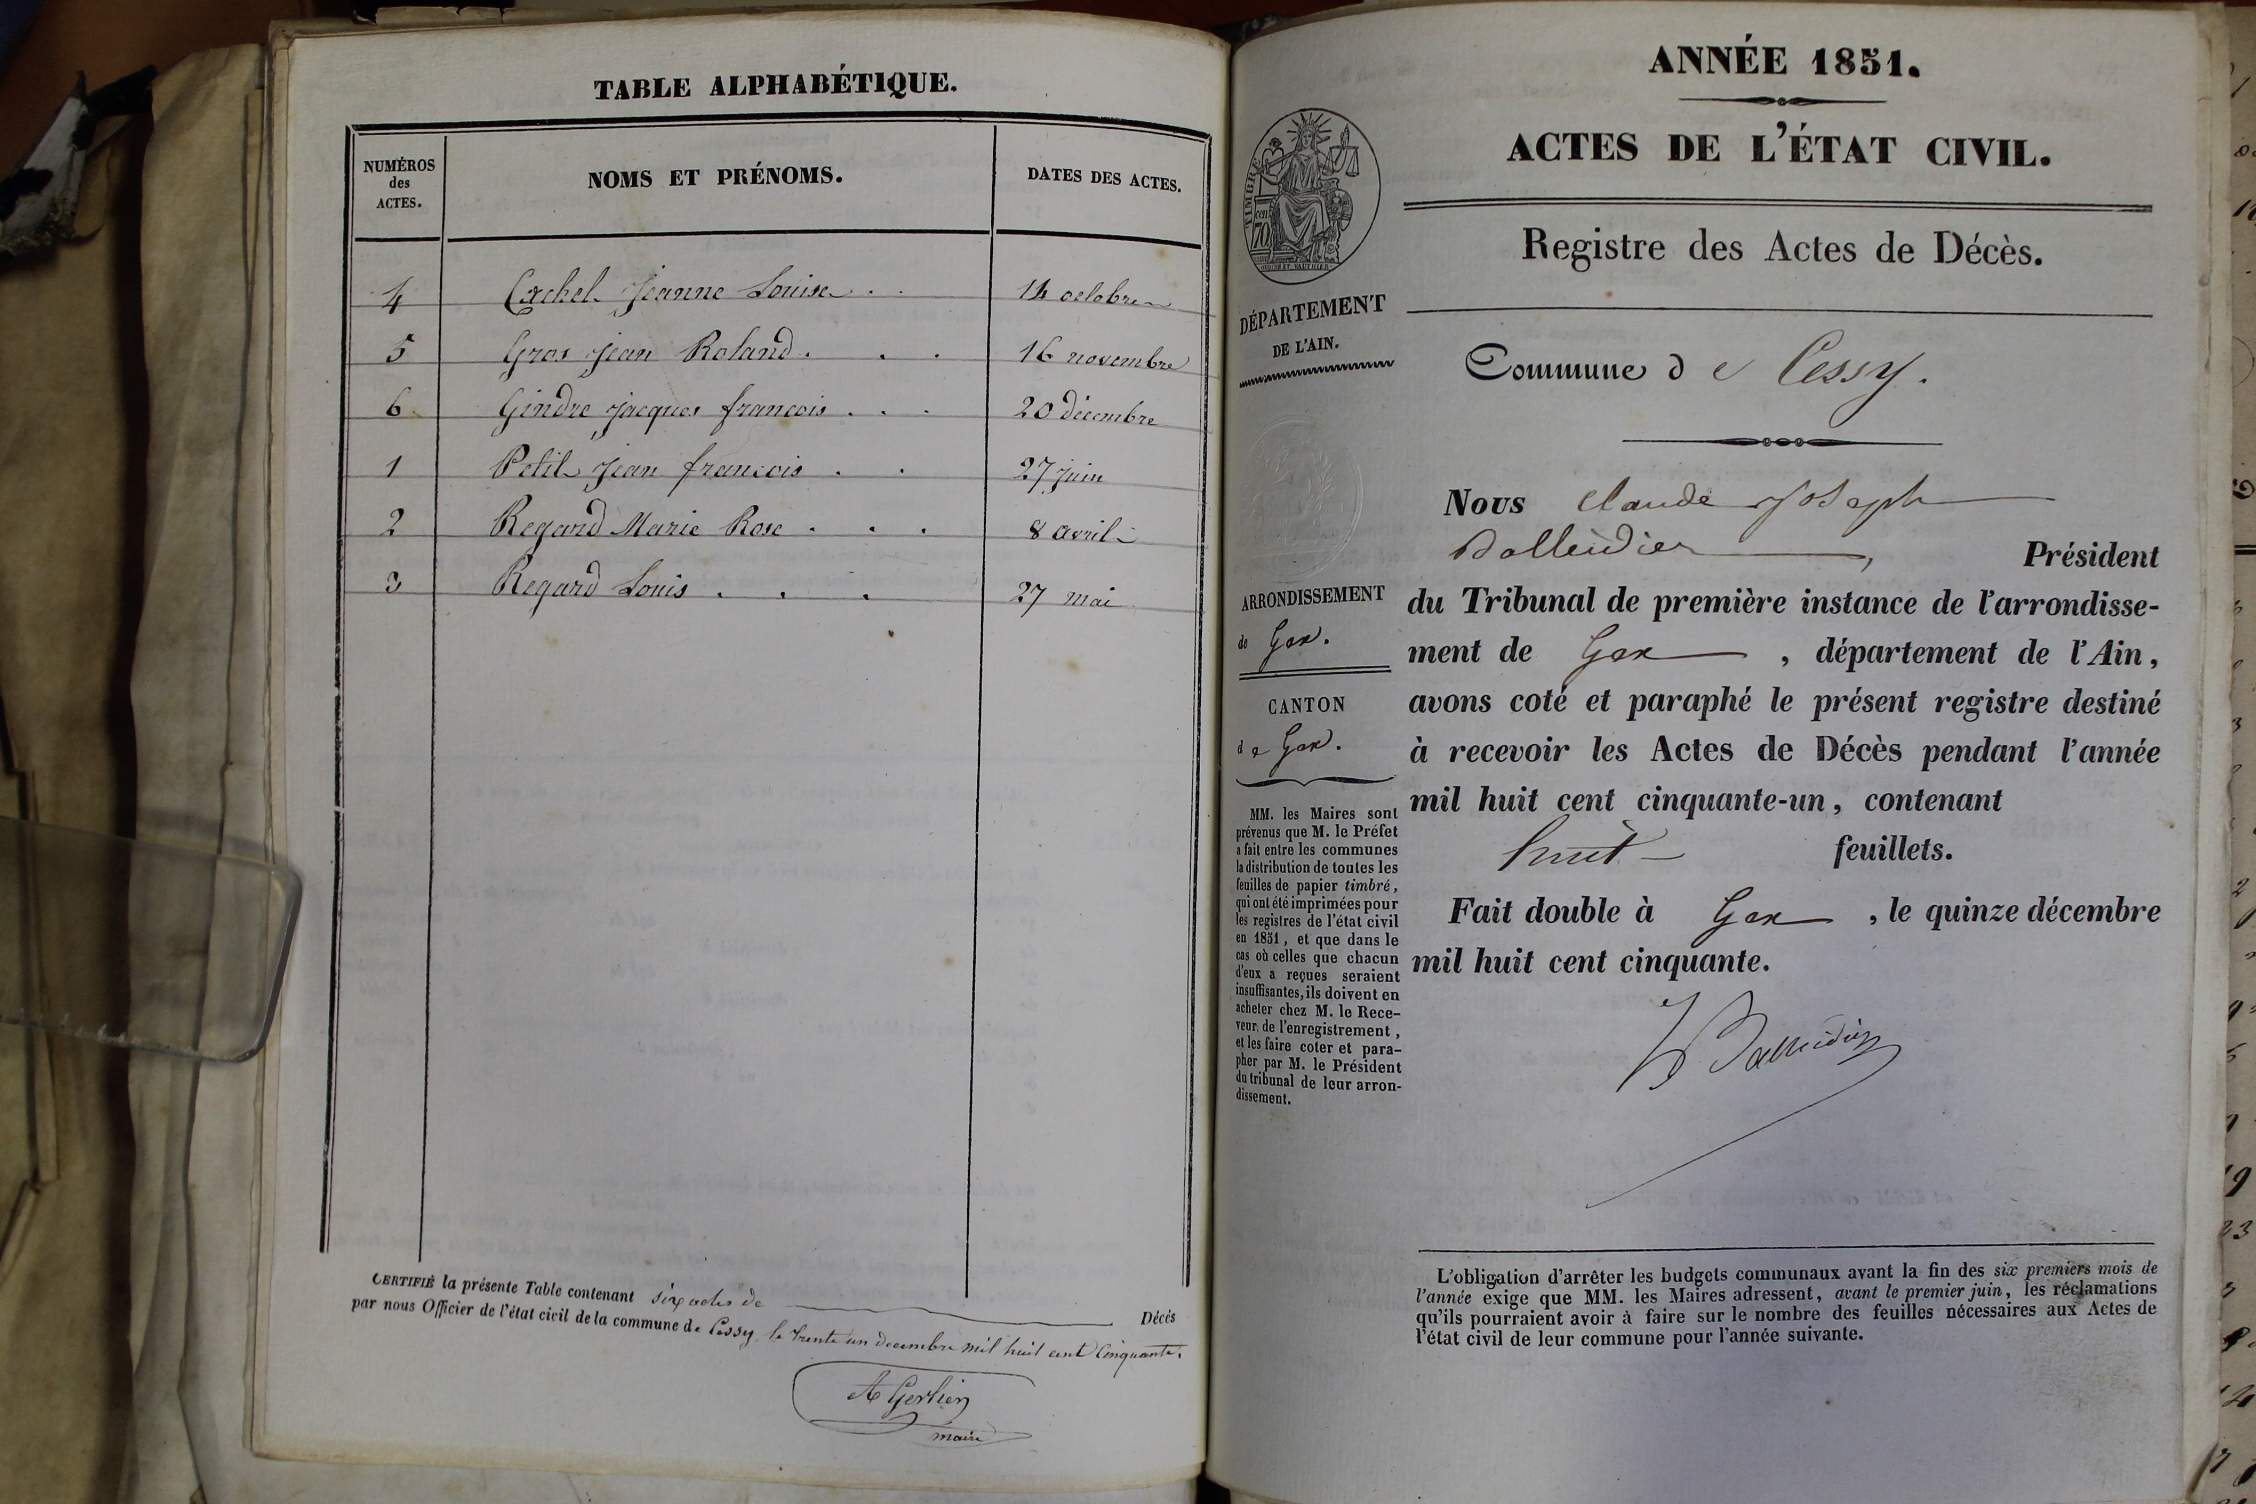 TABLE ALPHABÉTIQUE.
NUMÉROS des ACTES.
NOMS ET PRÉNOMS.
DATES DES ACTES.
4 Cxchel Jeanne Louise . . 14 octobre
5 Gros Jean Roland . . . 16 novembre
6 Gindre Jacques françois . . . 20 décembre
1 Petit Jean françois . . 27 juin
2 Regard Marie Rose . . . 8 avril
3 Regard Louis . . . 27 mai
CERTIFIÉ la présente Table contenant six actes de Décès
par nous Officier de l'état civil de la commune de Cessy le trente un decembre mil huit cent Cinquante.
A Gerlier
maire
ANNÉE 1851.
ACTES DE L'ÉTAT CIVIL.
Registre des Actes de Décès.
TIMBRE
70 cen
DÉPARTEMENT
DE L'AIN.
Commune de Cessy.
ARRONDISSEMENT
de Gex.
CANTON
de Gex.
MM. les Maires sont
prévenus que M. le Préfet
a fait entre les communes
la distribution de toutes les
feuilles de papier timbré,
qui ont été imprimées pour
les registres de l'état civil
en 1851, et que dans le
cas où celles que chacun
d'eux a reçues seraient
insuffisantes, ils doivent en
acheter chez M. le Rece-
veur de l'enregistrement,
et les faire coter et para-
pher par M. le Président
du tribunal de leur arron-
dissement.
Nous Claude Joseph
Balleidier, Président
du Tribunal de première instance de l'arrondisse-
ment de Gex, département de l'Ain,
avons coté et paraphé le présent registre destiné
à recevoir les Actes de Décès pendant l'année
mil huit cent cinquante-un, contenant
huit feuillets.
Fait double à Gex, le quinze décembre
mil huit cent cinquante.
Balleidier
L'obligation d'arrêter les budgets communaux avant la fin des six premiers mois de
l'année exige que MM. les Maires adressent, avant le premier juin, les réclamations
qu'ils pourraient avoir à faire sur le nombre des feuilles nécessaires aux Actes de
l'état civil de leur commune pour l'année suivante.